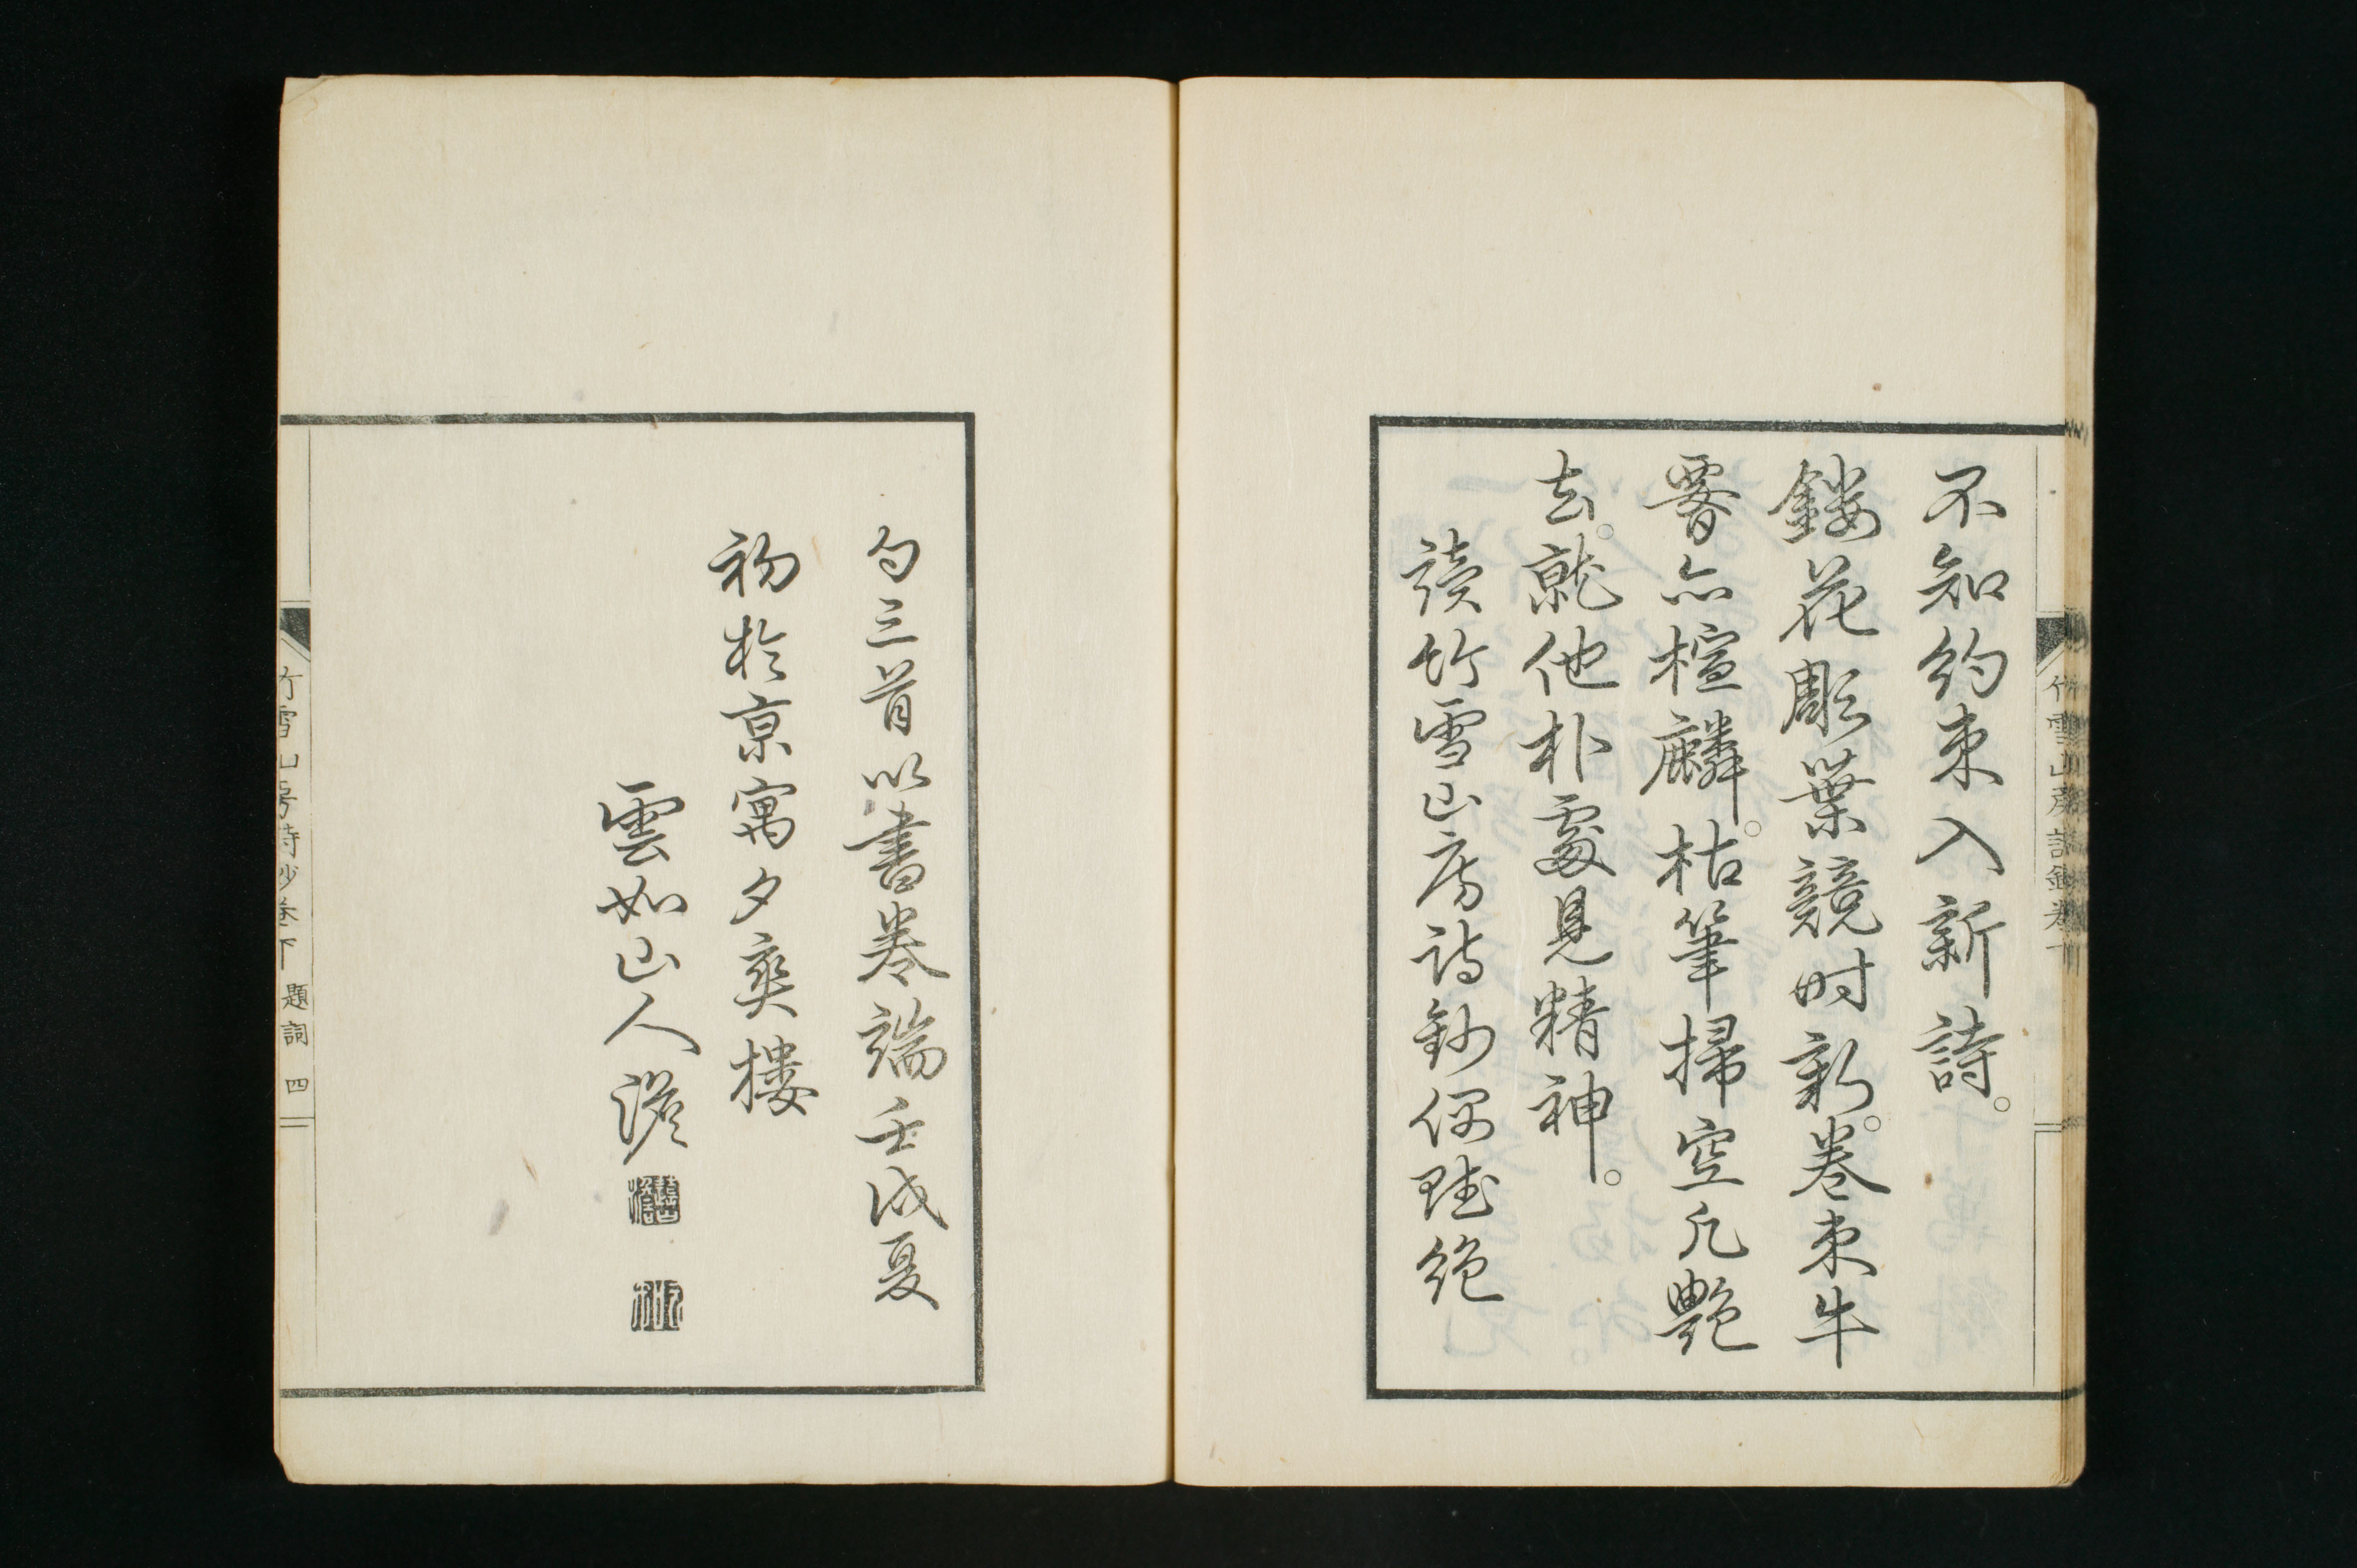 竹雪山房詩鈔卷下
不知約束入新詩。
鏤花彫葉競時新。卷束牛
腰亦楦麟。枯筆掃空凡艶
去。就他朴處見精神。
讀竹雪山房詩鈔偶題絶
句三首以書卷端壬戌夏
初於京寓夕爽樓
雲如山人澹
竹雪山房詩鈔卷下 題詞 四